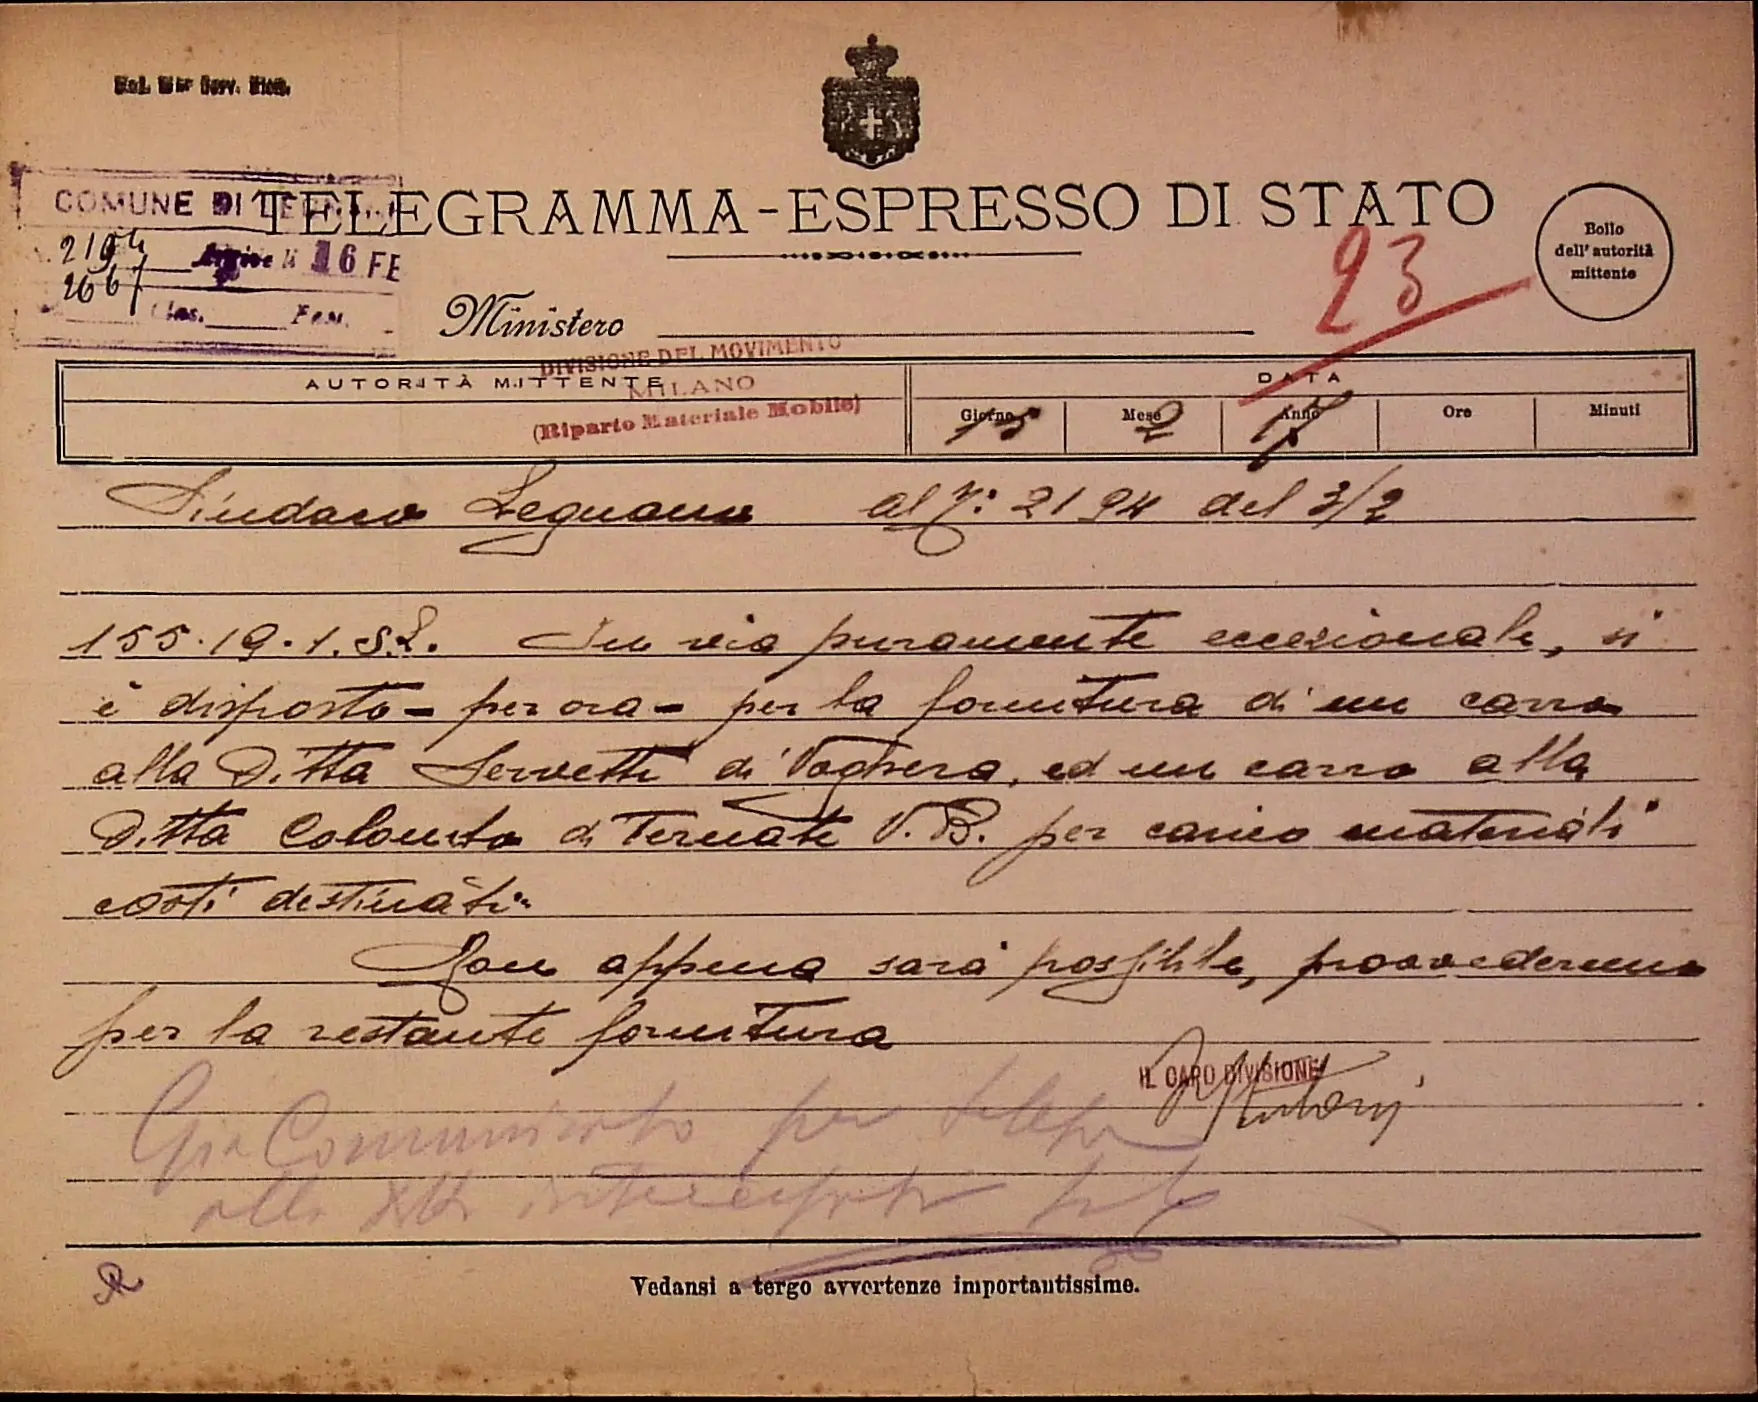 COMUNE DI LEGNANO
TELEGRAMMA-ESPRESSO DI STATO
2194
2667
16 FE
Clas. Fasc.
23
Bollo
dell'autorità
mittente
Ministero
DIVISIONE DEL MOVIMENTO
MILANO
(Riparto Materiale Mobile)
AUTORITÀ MITTENTE
DATA
Giorno Mese Anno Ore Minuti
15 2 17
Sindaco Legnano al N: 2194 del 3/2
155.19.1.S2. In via puramente eccezionale, si
è disposto - per ora - per la fornitura di un carro
alla Ditta Servetti di Voghera, ed un carro alla
Ditta Colombo di Ternate V.B. per carico materiali
costì destinati.
Non appena sarà possibile, provvederemo
per la restante fornitura
IL CAPO DIVISIONE
Già Comunicato per telef
alle ditte interessate
Vedansi a tergo avvertenze importantissime.